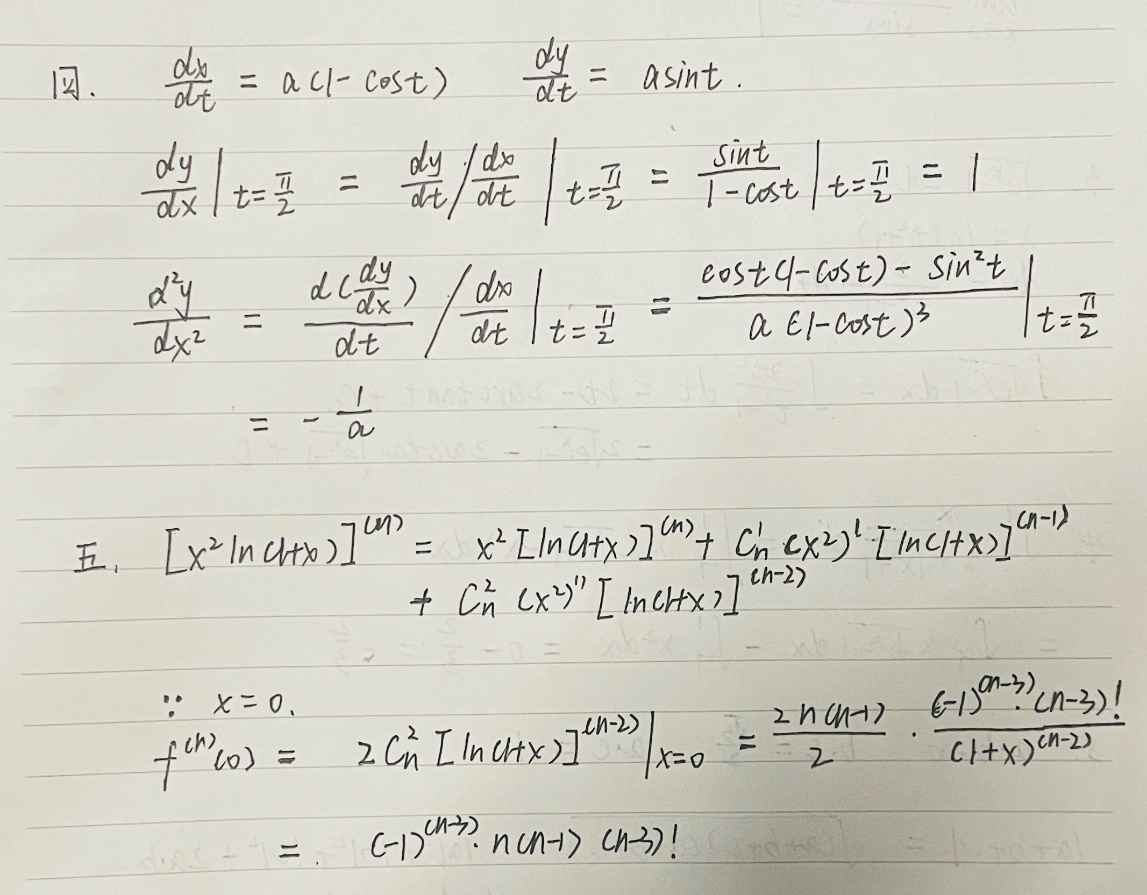 四. dx/dt = a(1-cost) dy/dt = asint.
dy/dx |t=π/2 = dy/dt / dx/dt |t=π/2 = sint/(1-cost) |t=π/2 = 1
d²y/dx² = d(dy/dx)/dt / dx/dt |t=π/2 = (cost(1-cost) - sin²t)/(a(1-cost)³) |t=π/2
= -1/a
五. [x² ln(1+x)]⁽ⁿ⁾ = x² [ln(1+x)]⁽ⁿ⁾ + Cₙ¹ (x²)' [ln(1+x)]⁽ⁿ⁻¹⁾
+ Cₙ² (x²)'' [ln(1+x)]⁽ⁿ⁻²⁾
∵ x=0.
f⁽ⁿ⁾(0) = 2Cₙ² [ln(1+x)]⁽ⁿ⁻²⁾ |x=0 = 2n(n-1)/2 · (-1)⁽ⁿ⁻³⁾·(n-3)!/(1+x)⁽ⁿ⁻²⁾
= (-1)⁽ⁿ⁻³⁾· n(n-1) (n-3)!